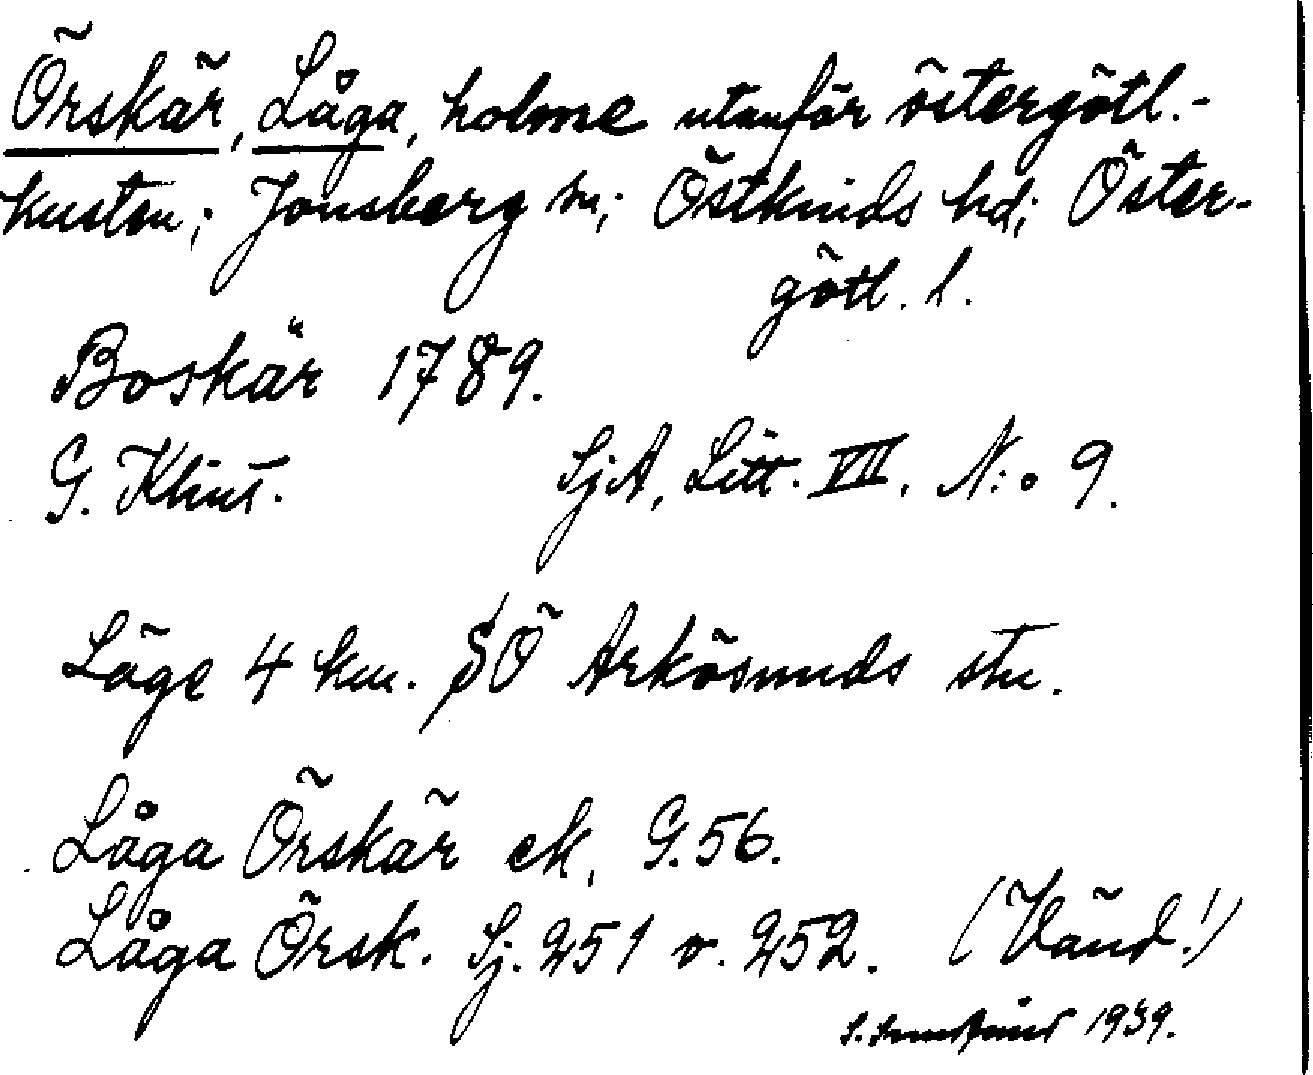 Örskär, Låga, holme utanför östergötl.-
kusten; Jonsberg sn; Östkinds hd; Öster-
götl. l.
Boskär 1789.
G. Klint. SjA, Litt. VII. N:o 9.
Läge 4 km. SÖ Arkösunds stn.
Låga Örskär ek. G.56.
Låga Örsk. Sj. 251 o. 252. (Vänd!)
S. 1939.